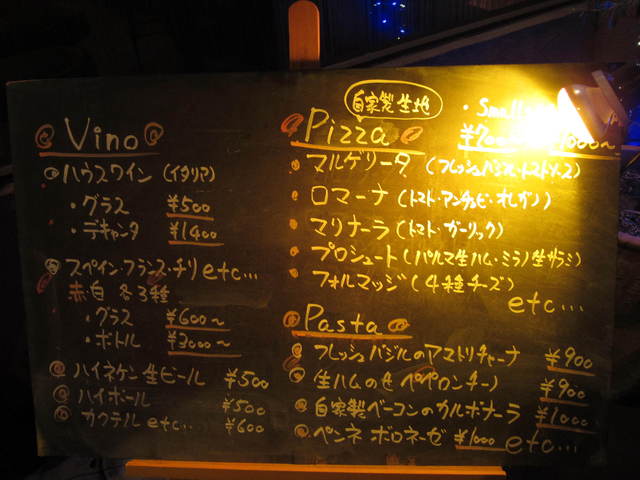 Vino
ハウスワイン (イタリア)
・グラス ¥500
・デキャンタ ¥1400
スペイン・フランス・チリ etc...
赤白 各3種
・グラス ¥600〜
・ボトル ¥3000〜
ハイネケン生ビール ¥500
ハイボール ¥500
カクテル etc... ¥600
自家製生地
Pizza
・Small
マルゲリータ (フレッシュバジル・トマトソース)
ロマーナ (トマト・アンチョビ・オレガノ)
マリナーラ (トマト・ガーリック)
プロシュート (パルマ生ハム・ミラノ生サラミ)
フォルマッジ (4種チーズ)
etc...
Pasta
フレッシュバジルのアマトリチャーナ ¥900
生ハムの ペペロンチーノ ¥900
自家製ベーコンのカルボナーラ ¥1000
ペンネ ボロネーゼ ¥1000 etc...